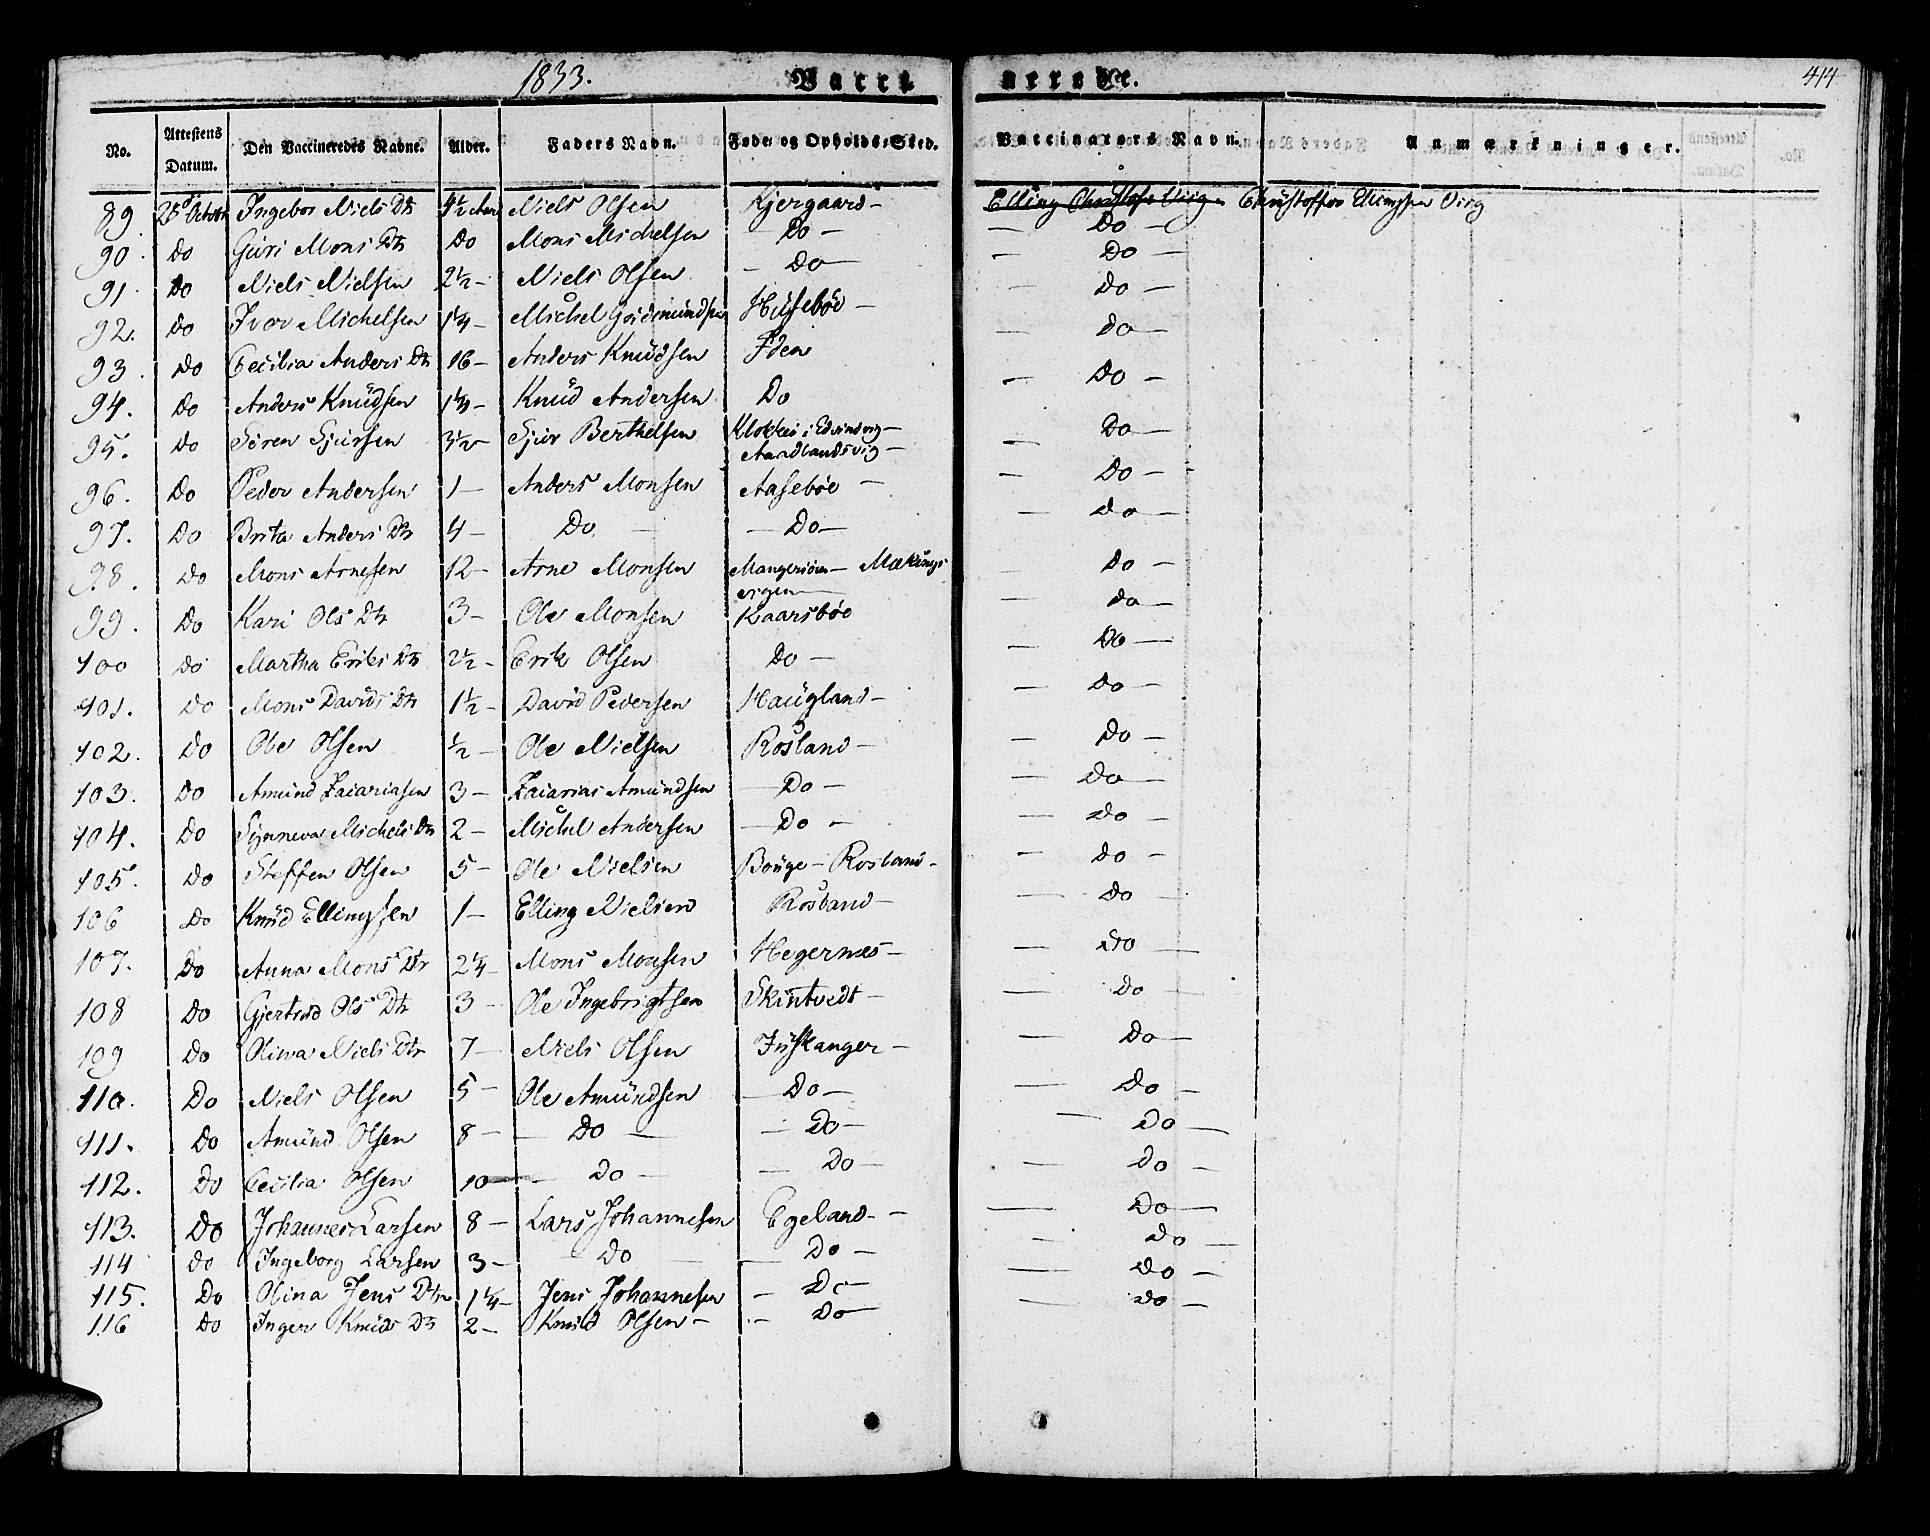 1833. Vacci nerede. 414
No. Attestens Datum. Den Vaccineredes Navne. Alder. Faders Navn. Føde- og Opholds-Sted. Vaccinateurs Navn. Anmærkninger.
89. 25de Octobr Ingebor Niels Dtr 4½ Aar Niels Olsen Kjergaard - Christoffer Ellingsen Virg
90. Do Guri Mons Dtr Do Mons Michelsen Do - - Do -
91. Do Niels Nielsen 2½ - Niels Olsen - Do - - Do -
92. Do Iver Michelsen 1¾ - Michel Gudmundsen Husebøe - - Do -
93. Do Cecilia Anders Dtr 16 - Anders Knudsen Iden - Do -
94. Do Anders Knudsen 1¾ - Knud Andersen Do - Do -
95. Do Søren Sjursen 3½ - Sjur Berthelsen Klokker i Edvindvig - - Do -
Aardlandsvig -
96. Do Peder Andersen 1 - Anders Monsen Aasebøe - - Do -
97. Do Brita Anders Dtr 4 - Do - - Do - - Do -
98. Do Mons Arnesen 12 - Arne Monsen Mangersøen - - Do -
99. Do Kari Ols Dtr 3 - Ole Monsen Kaarsbøe - Do -
100 Do Martha Eriks Dtr 2½ - Erik Olsen Do - - Do -
101. Do Mons Davids Dtr 1½ - David Pedersen Haugland - - Do -
102. Do Ole Olsen ½ - Ole Nielsen Rosland - - Do -
103. Do Amund Zacariasen 3 - Zacarias Amundsen - Do - - Do -
104. Do Synneva Michels Dtr 2 - Michel Andersen - Do - - Do -
105. Do Steffen Olsen 5 - Ole Nielsen Bouge - Rosland - - Do -
106 Do Knud Ellingsen 1 - Elling Nielsen Rosland - - Do -
107. Do Anna Mons Dtr 2¼ - Mons Monsen Hegernæs - - Do -
108 Do Gjertrud Ols Dtr 3 - Ole Ingebrigtsen Skintvedt - - Do -
109 Do Oliwa Niels Dtr 7 - Niels Olsen Juskanger - - Do -
110. Do Niels Olsen 5 - Ole Amundsen - Do - - Do -
111. Do Amund Olsen 8 - - Do - - Do - - Do -
112. Do Cecilia Olsen 10 - Do - - Do - - Do -
113. Do Johannes Larsen 8 - Lars Johannesen Egeland - - Do -
114 Do Ingeborg Larsen 3 - - Do - - Do - - Do -
115. Do Olina Jens Dtr 1¼ - Jens Johannesen - Do - - Do -
116 Do Inger Knuds Dtr 2 - Knud Olsen - - Do - Do -